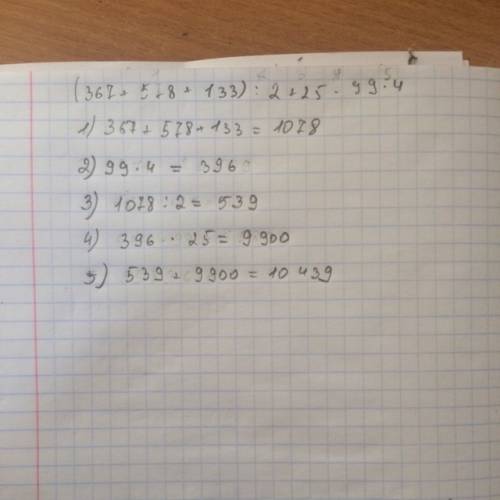 (367 + 578 + 133) : 2 + 25 · 99 · 4
1) 367 + 578 + 133 = 1078
2) 99 · 4 = 396
3) 1078 : 2 = 539
4) 396 · 25 = 9900
5) 539 + 9900 = 10 439